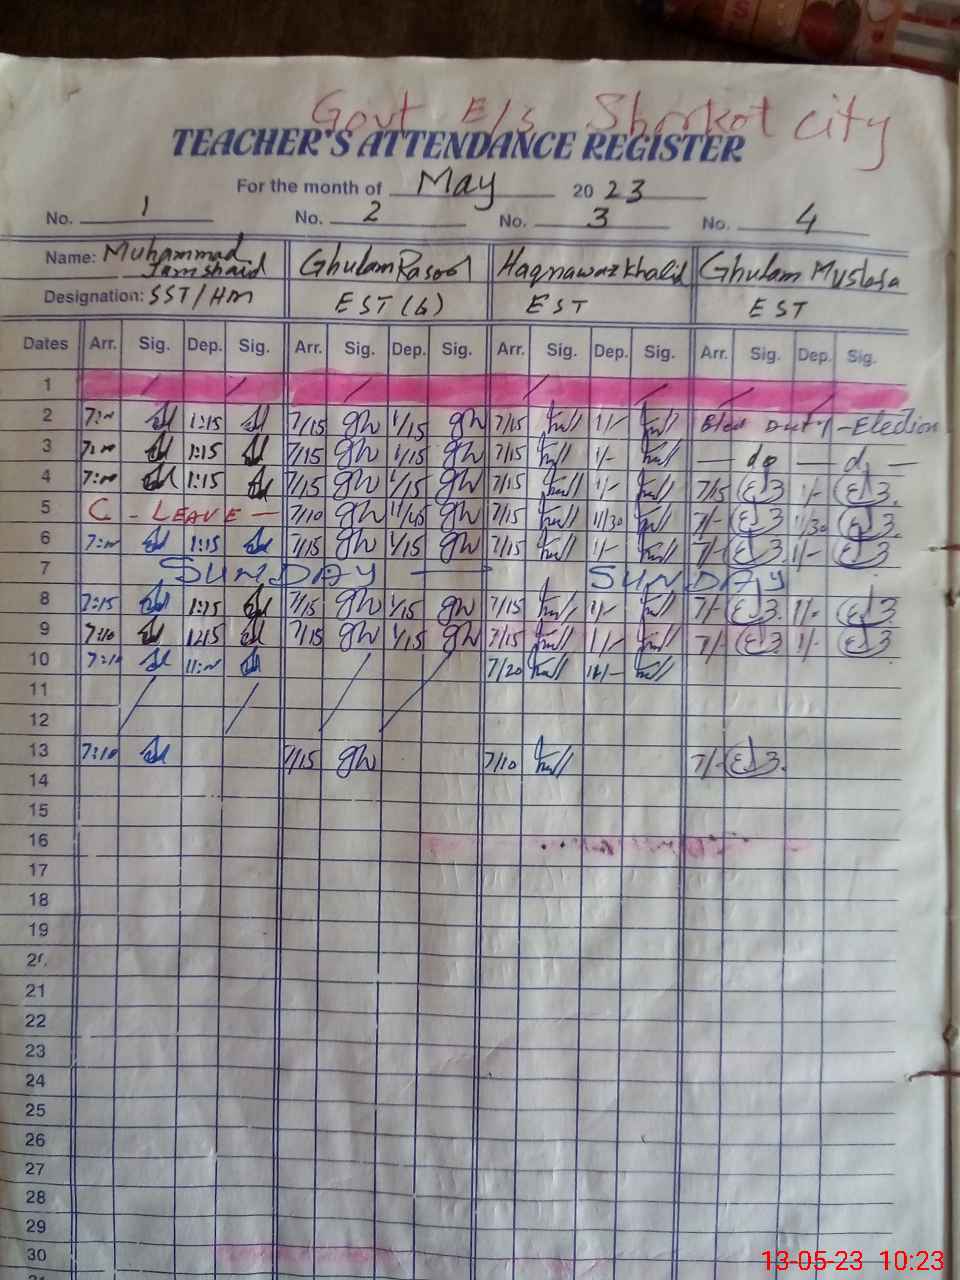 Govt E/S Shorkot city
TEACHER'S ATTENDANCE REGISTER
For the month of May 2023
No. 1 No. 2 No. 3 No. 4
Name: Muhammad Jamshaid Ghulam Rasool Haqnawaz Khalid Ghulam Mustafa
Designation: SST/HM EST (G) EST EST
Dates Arr. Sig. Dep. Sig. Arr. Sig. Dep. Sig. Arr. Sig. Dep. Sig. Arr. Sig. Dep. Sig.
1
2 7:00 1:15 7/15 1/15 7/15 1/- Duty - Election
3 7:00 1:15 7/15 1/15 7/15 1/- — do — do —
4 7:00 1:15 7/15 1/15 7/15 1/- 7/15 1/-
5 C - LEAVE — 7/10 11/45 7/15 11/30 7/- 11/30
6 7:00 1:15 7/15 1/15 7/15 1/- 7/- 1/-
7 SUNDAY — SUNDAY
8 7:15 1:15 7/15 1/15 7/15 1/- 7/- 1/-
9 7:10 1:15 7/15 1/15 7/15 1/- 7/- 1/-
10 7:10 11:00 7/20
11
12
13 7:10 7/15 7/10 7/-
14
15
16
17
18
19
20
21
22
23
24
25
26
27
28
29
30
13-05-23 10:23